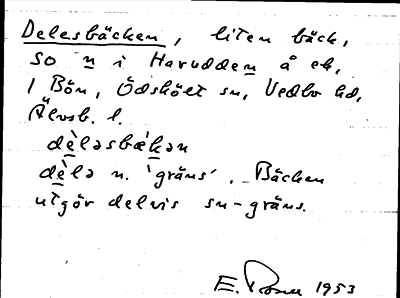 Delesbäcken, liten bäck,
SO n i Harudden å ek,
1 Bön, Ödskölt sn, Vedbo hd,
Älvsb. l.
dèləsbækən
dèlə n. 'gräns'. Bäcken
utgör delvis sn-gräns.
E. 1953